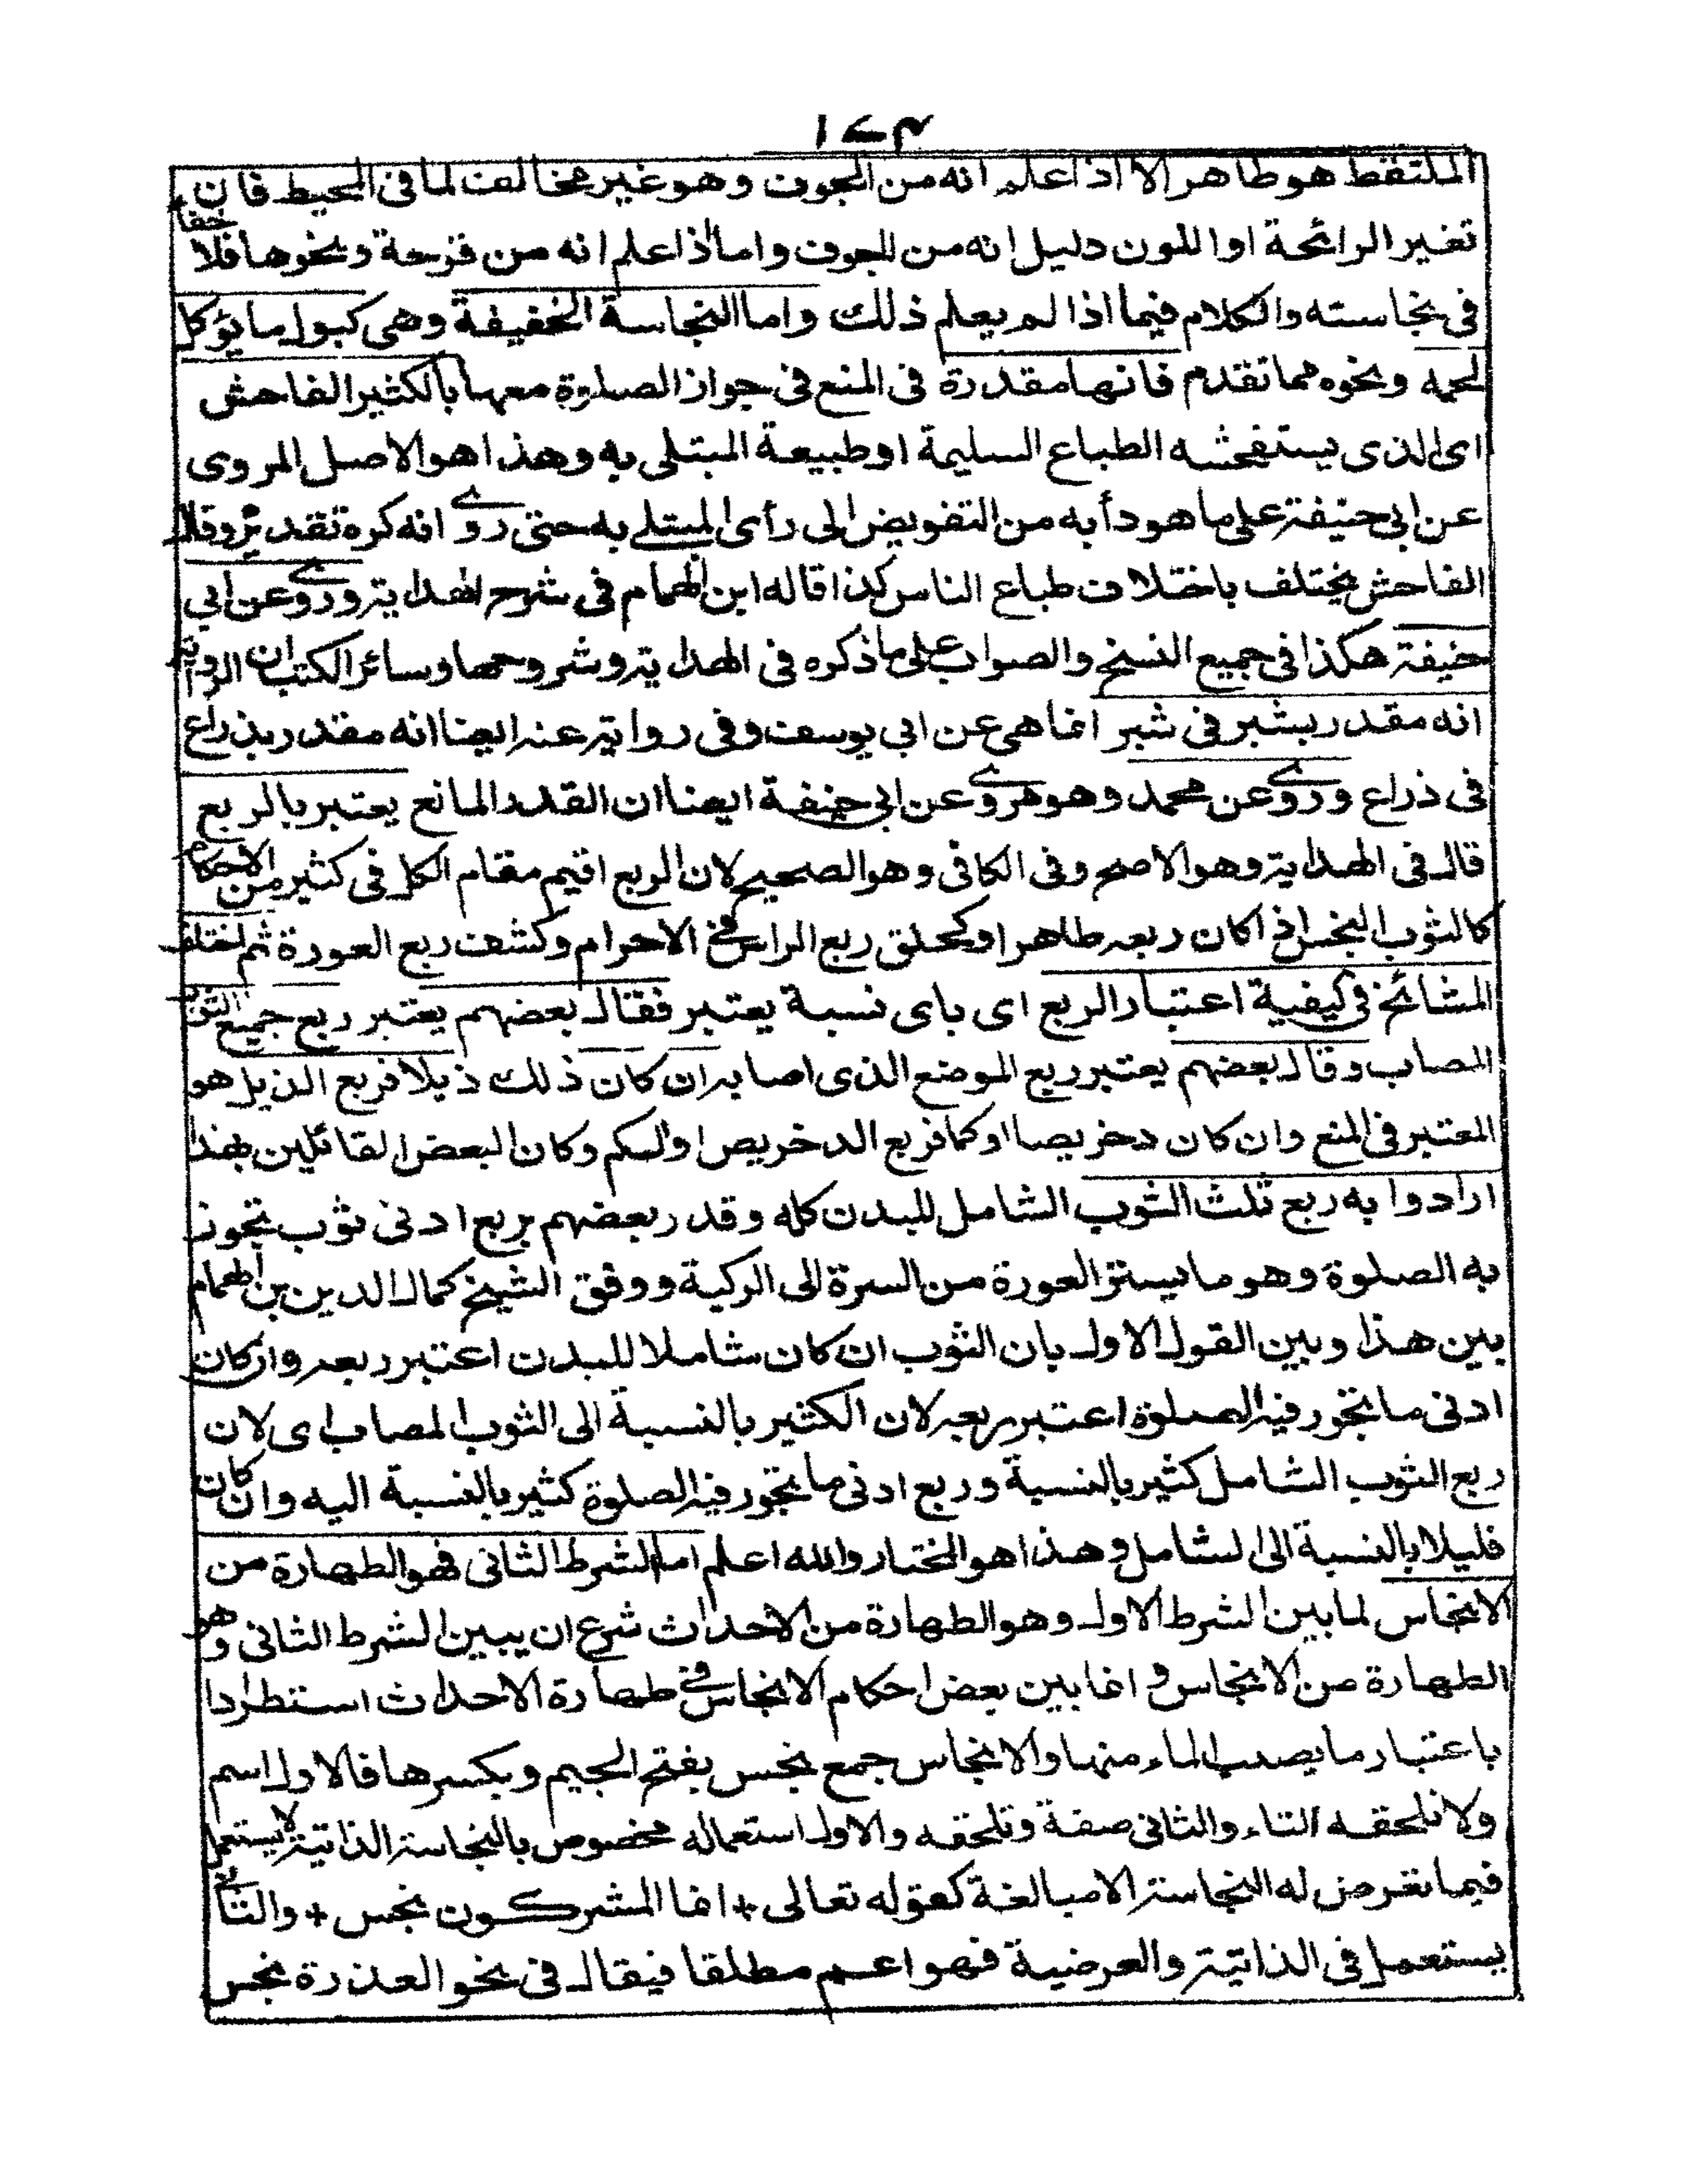 ١٧٤
الملتقط هو طاهر الا اذا علم انه من الجوف وهو غير مخالف لما فى المحيط فان
تغير الرائحة او اللون دليل انه من الجوف واما اذا علم انه من قرحة ونحوها فلا خفاء
فى نجاسته والكلام فيما اذا لم يعلم ذلك واما النجاسة الخفيفة وهى كبول ما يؤكل
لحمه ونحوه مما تقدم فانها مقدرة فى المنع فى جواز الصلوة معها بالكثير الفاحش
اى الذى يستفحشه الطباع السليمة او طبيعة المبتلى به وهذا هو الاصل المروى
عن ابى حنيفة على ما هو دأبه من التفويض الى رأى المبتلى به حتى روى انه كره تقديره وقال
الفاحش يختلف باختلاف طباع الناس كذا قاله ابن الهمام فى شرح الهداية وروى عن ابى
حنيفة هكذا فى جميع النسخ والصواب على ما ذكره فى الهداية وشروحها وسائر الكتب ان الرواية
انه مقدر بشبر فى شبر انما هى عن ابي يوسف وفى رواية عنه ايضا انه مقدر بذراع
فى ذراع وروى عن محمد وهو مروى عن ابى حنيفة ايضا ان القدر المانع يعتبر بالربع
قال فى الهداية وهو الاصح وفى الكافى وهو الصحيح لان الربع اقيم مقام الكل فى كثير من الاحكام
كالثوب النجس اذا كان ربعه طاهرا وكحلق ربع الراس فى الاحرام وكشف ربع العورة ثم اختلف
المشائخ فى كيفية اعتبار الربع اى باى نسبة يعتبر فقال بعضهم يعتبر ربع جميع الثوب
المصاب وقال بعضهم يعتبر ربع الموضع الذى اصابه ان كان ذلك ذيلا فربع الذيل هو
المعتبر فى المنع وان كان دخريصا او كما فربع الدخريص او الكم وكان البعض القائلين بهذا
ارادوا به ربع ثلث الثوب الشامل للبدن كله وقدر بعضهم بربع ادنى ثوب تجوز
به الصلوة وهو ما يستر العورة من السرة الى الركبة ووفق الشيخ كمال الدين بن الهمام
بين هذا وبين القول الاول بان الثوب ان كان شاملا للبدن اعتبر ربعه وان كان
ادنى ما تجور فيه الصلوة اعتبر ربعه لان الكثير بالنسبة الى الثوب المصاب اى لان
ربع الثوب الشامل كثير بالنسبة وربع ادنى ما تجور فيه الصلوة كثير بالنسبة اليه وان كان
قليلا بالنسبة الى الشامل وهذا هو المختار والله اعلم اما الشرط الثانى فهو الطهارة من
الانجاس لما بين الشرط الاول وهو الطهارة من الاحداث شرع ان يبين الشرط الثانى وهو
الطهارة من الانجاس و انما بين بعض احكام الانجاس فى طهارة الاحداث استطرادا
باعتبار ما يصيب الماء منها والانجاس جمع نجس بفتح الجيم وبكسرها فالاول اسم
ولا تلحقه التاء والثانى صفة وتلحقه والاول استعماله مخصوص بالنجاسة الذاتية لا يستعمل
فيما تعرض له النجاسة الا مبالغة كقوله تعالى + انما المشركون نجس + والثانى
يستعمل فى الذاتية والعرضية فهو اعم مطلقا فيقال فى نحو العذرة نجس